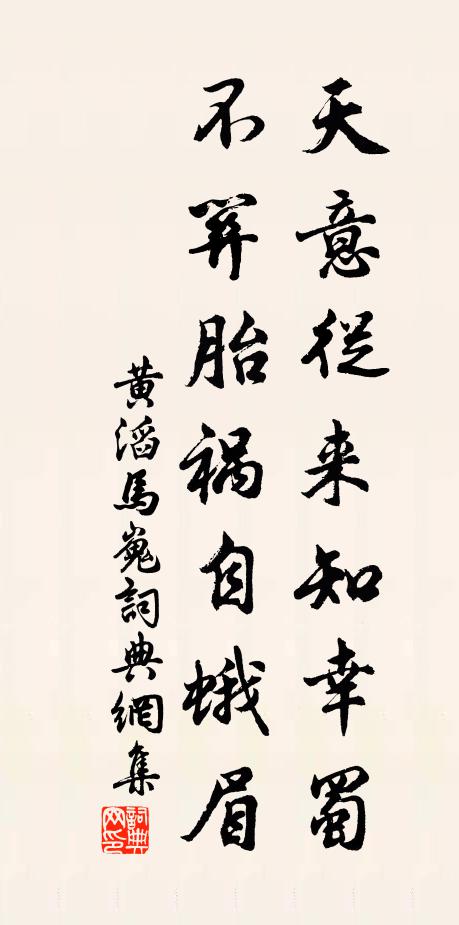 天意從来知幸蜀
不關胎禍自蛾眉
黃滔馬嵬詞典網集
詞典
网印